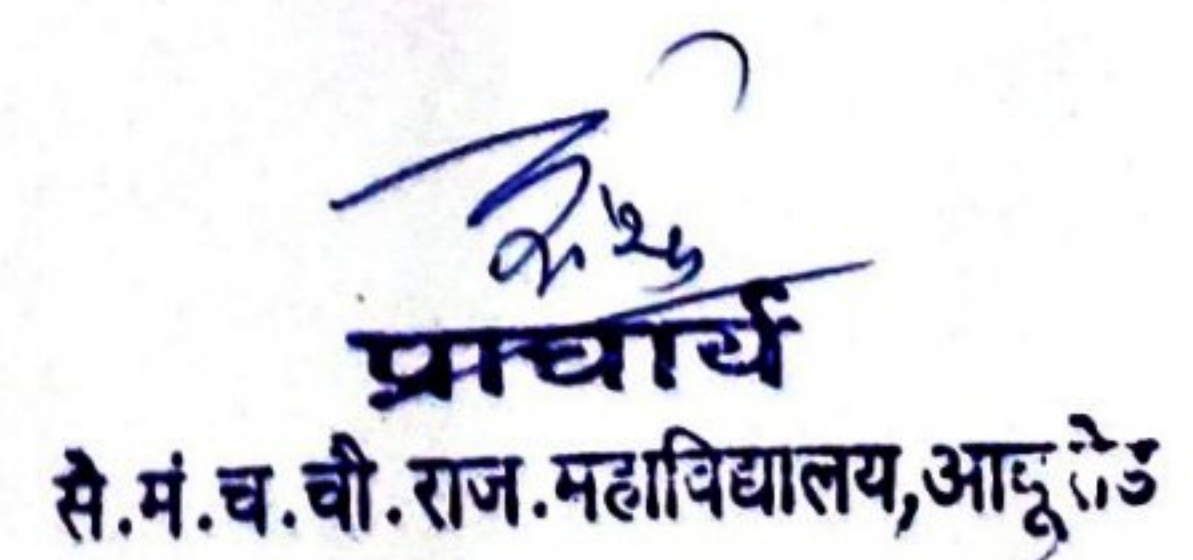 प्राचार्य
से.मं.च.ची.राज.महाविद्यालय,आबूरोड